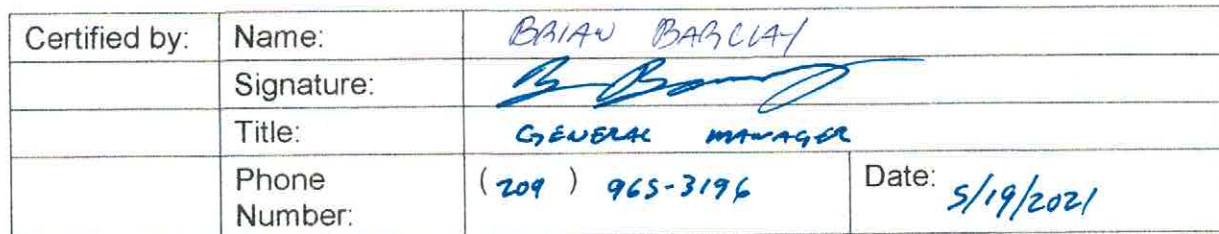 Certified by: Name: BRIAN BARCLAY
Signature:
Title: GENERAL MANAGER
Phone Number: (209) 965-3196 Date: 5/19/2021